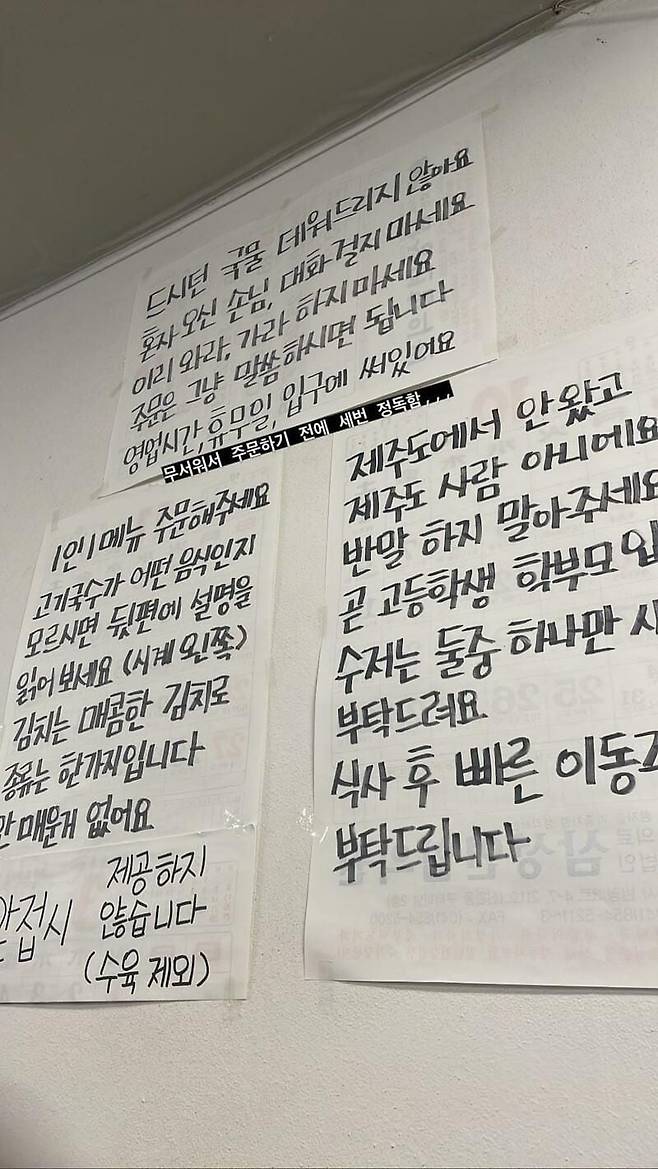 드시던 국물 데워드리지 않아요
혼자 오신 손님, 대화 걸지 마세요
이리 와라, 가라 하지마세요
주문은 그냥 말씀하시면 됩니다
영업시간, 휴무일, 입구에 써있어요
무서워서 주문하기 전에 세번 정독함...
1인 1메뉴 주문해주세요
고기국수가 어떤 음식인지
모르시면 뒷편에 설명을
읽어 보세요 (시계 왼쪽)
김치는 매콤한 김치로
종류는 한가지입니다
안 매운거 없어요
접시 제공하지
않습니다
(수육 제외)
제주도에서 안 왔고
제주도 사람 아니에요
반말 하지 말아주세요
곧 고등학생 학부모
수저는 둘중 하나만
부탁드려요
식사 후 빠른 이동
부탁드립니다